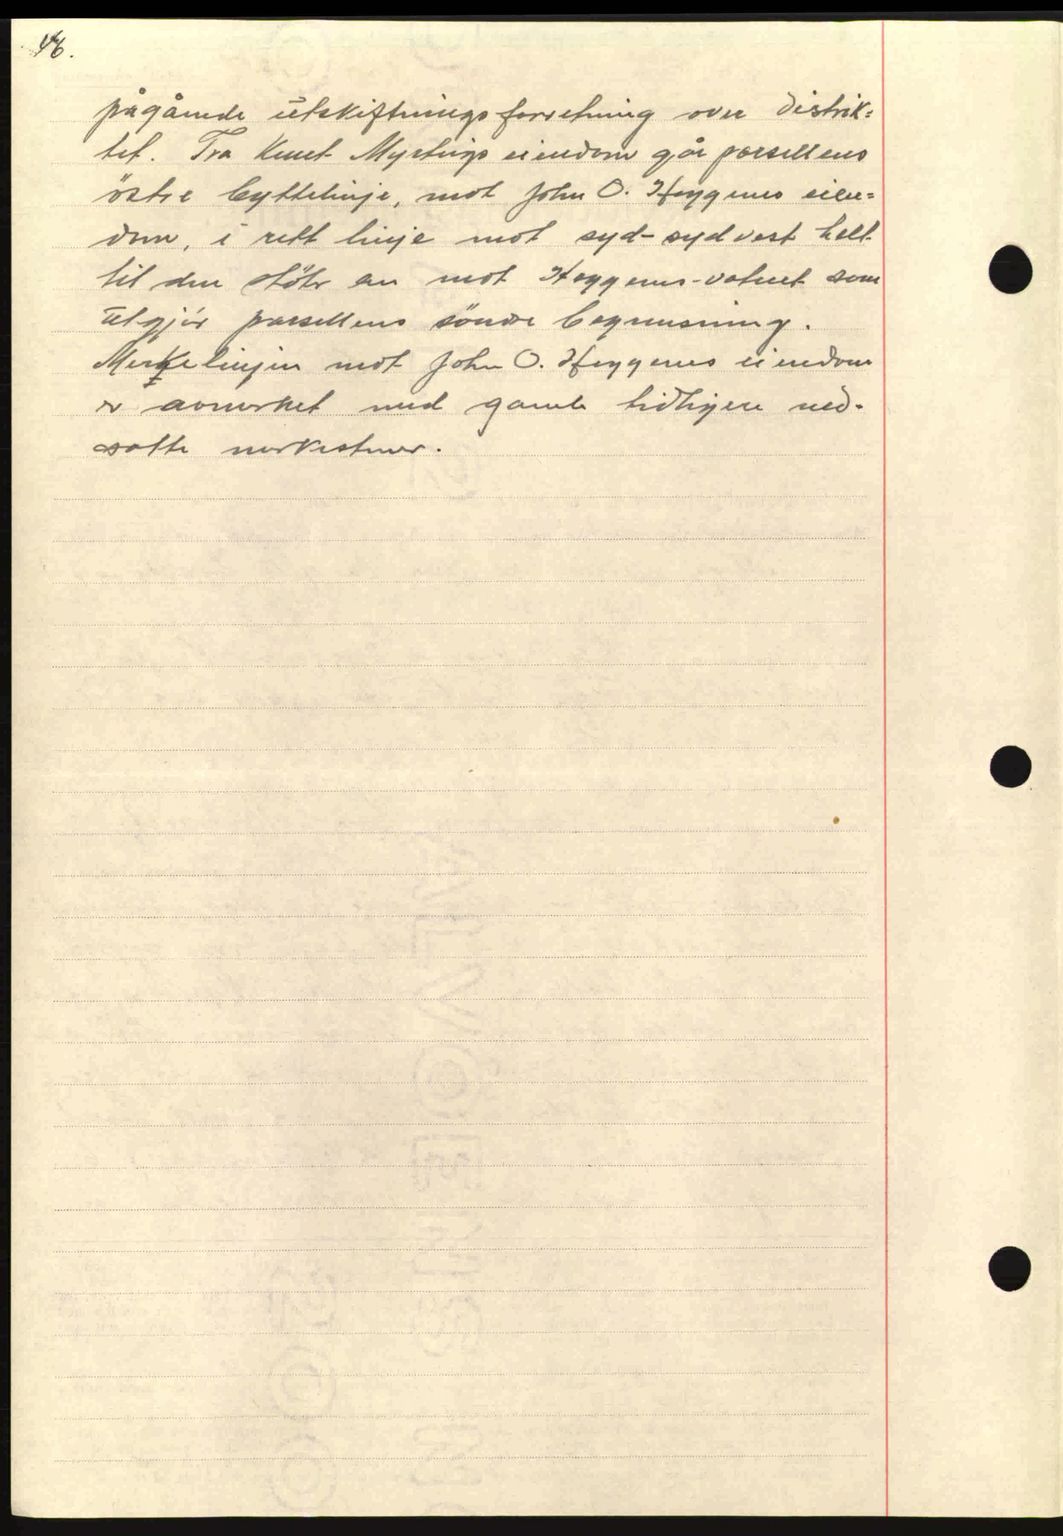 46.
pågående utskiftningsforretning over distrik=
tet. Fra Knut Myrtungs eiendom går parsellens
östre byttelinje, mot John O. Heggenes eien=
dom, i rett linje mot syd-sydvest helt
til den støter an mot Heggenes-vatnet som
utgjör parsellens söndre begrensning.
Merkelinjen mot John O. Heggenes eiendom
er avmerket med gamle tidligere ned-
satte merkestener.